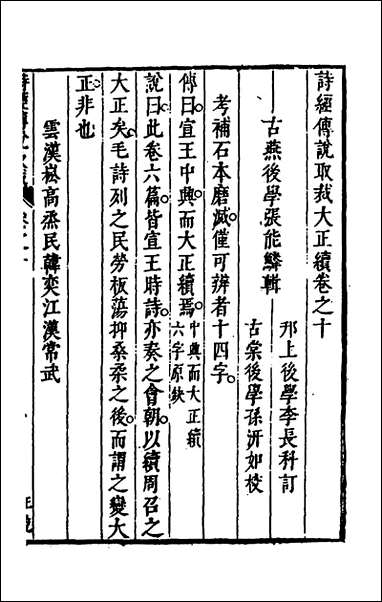 詩經傳說取裁大正續卷之十
邘上後學李長科訂
古燕後學張能鱗輯
古棠後學孫沂如校
考補石本磨滅僅可辨者十四字
傳曰宣王中興而大正續焉中興而大正續六字原缺
說曰此卷六篇皆宣王時詩亦奏之會朝以續周召之
大正矣毛詩列之民勞板蕩抑桑柔之後而謂之變大
正非也
雲漢崧高烝民韓奕江漢常武